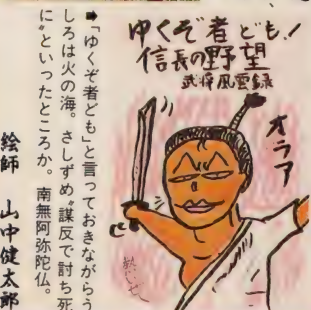 ゆくぞ者ども!
信長の野望
武将風雲録
オラア
熱いぜ
➡「ゆくぞ者ども」と言っておきながらう
しろは火の海。さしずめ〝謀反で討ち死
に〟といったところか。南無阿弥陀仏。
絵師 山中健太郎